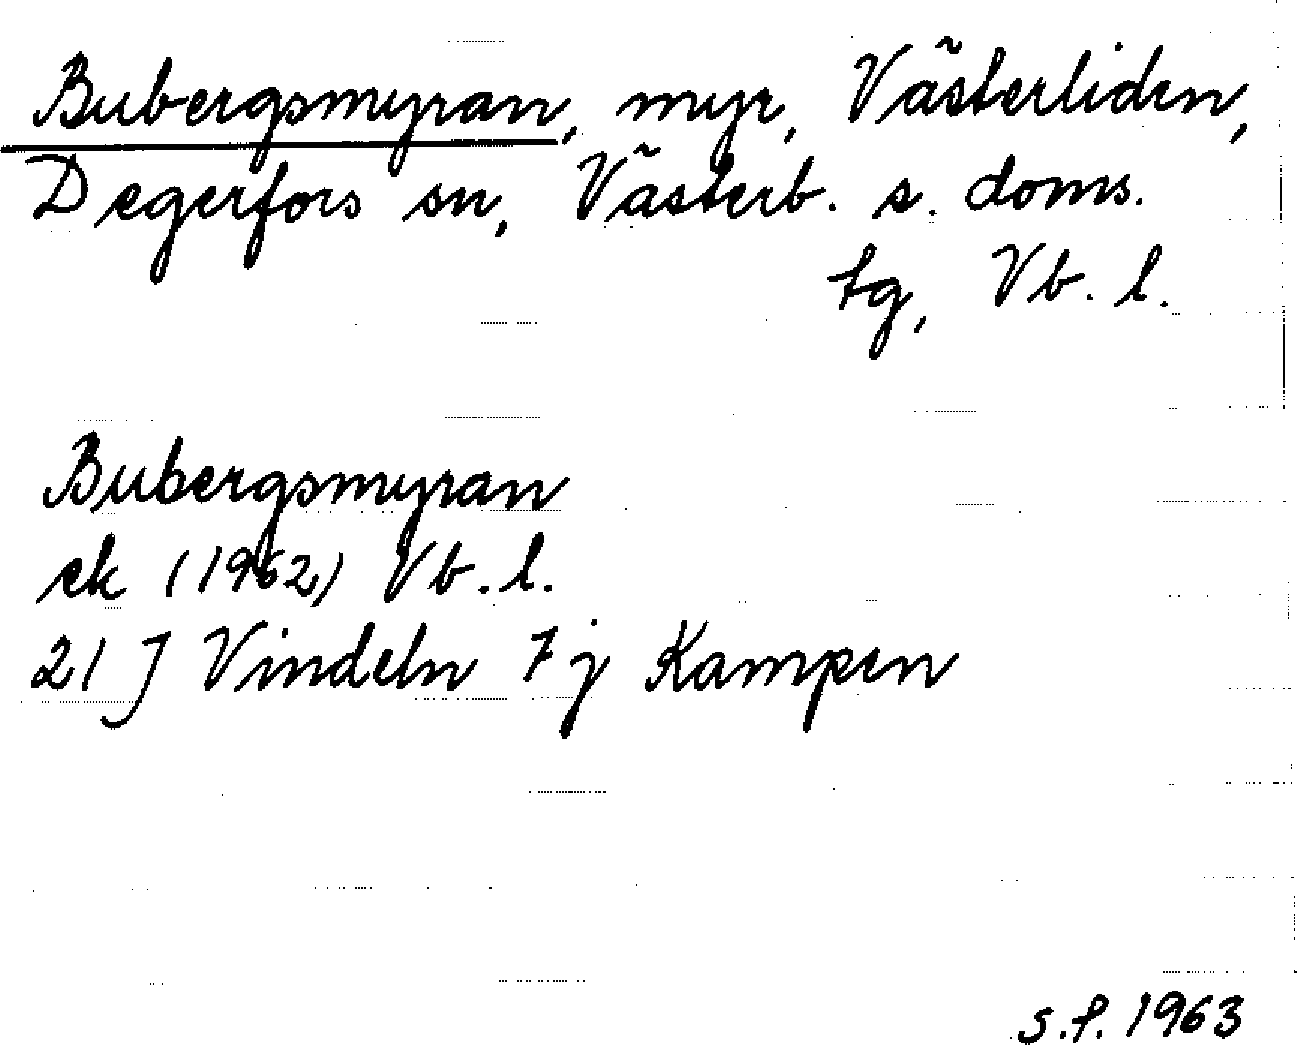 Bubergsmyran, myr, Västerliden,
Degerfors sn, Västerb. s. doms.
tg, Vb. l.
Bubergsmyran
ek (1962) Vb. l.
21 J Vindeln 7 j Kampen
S.f. 1963